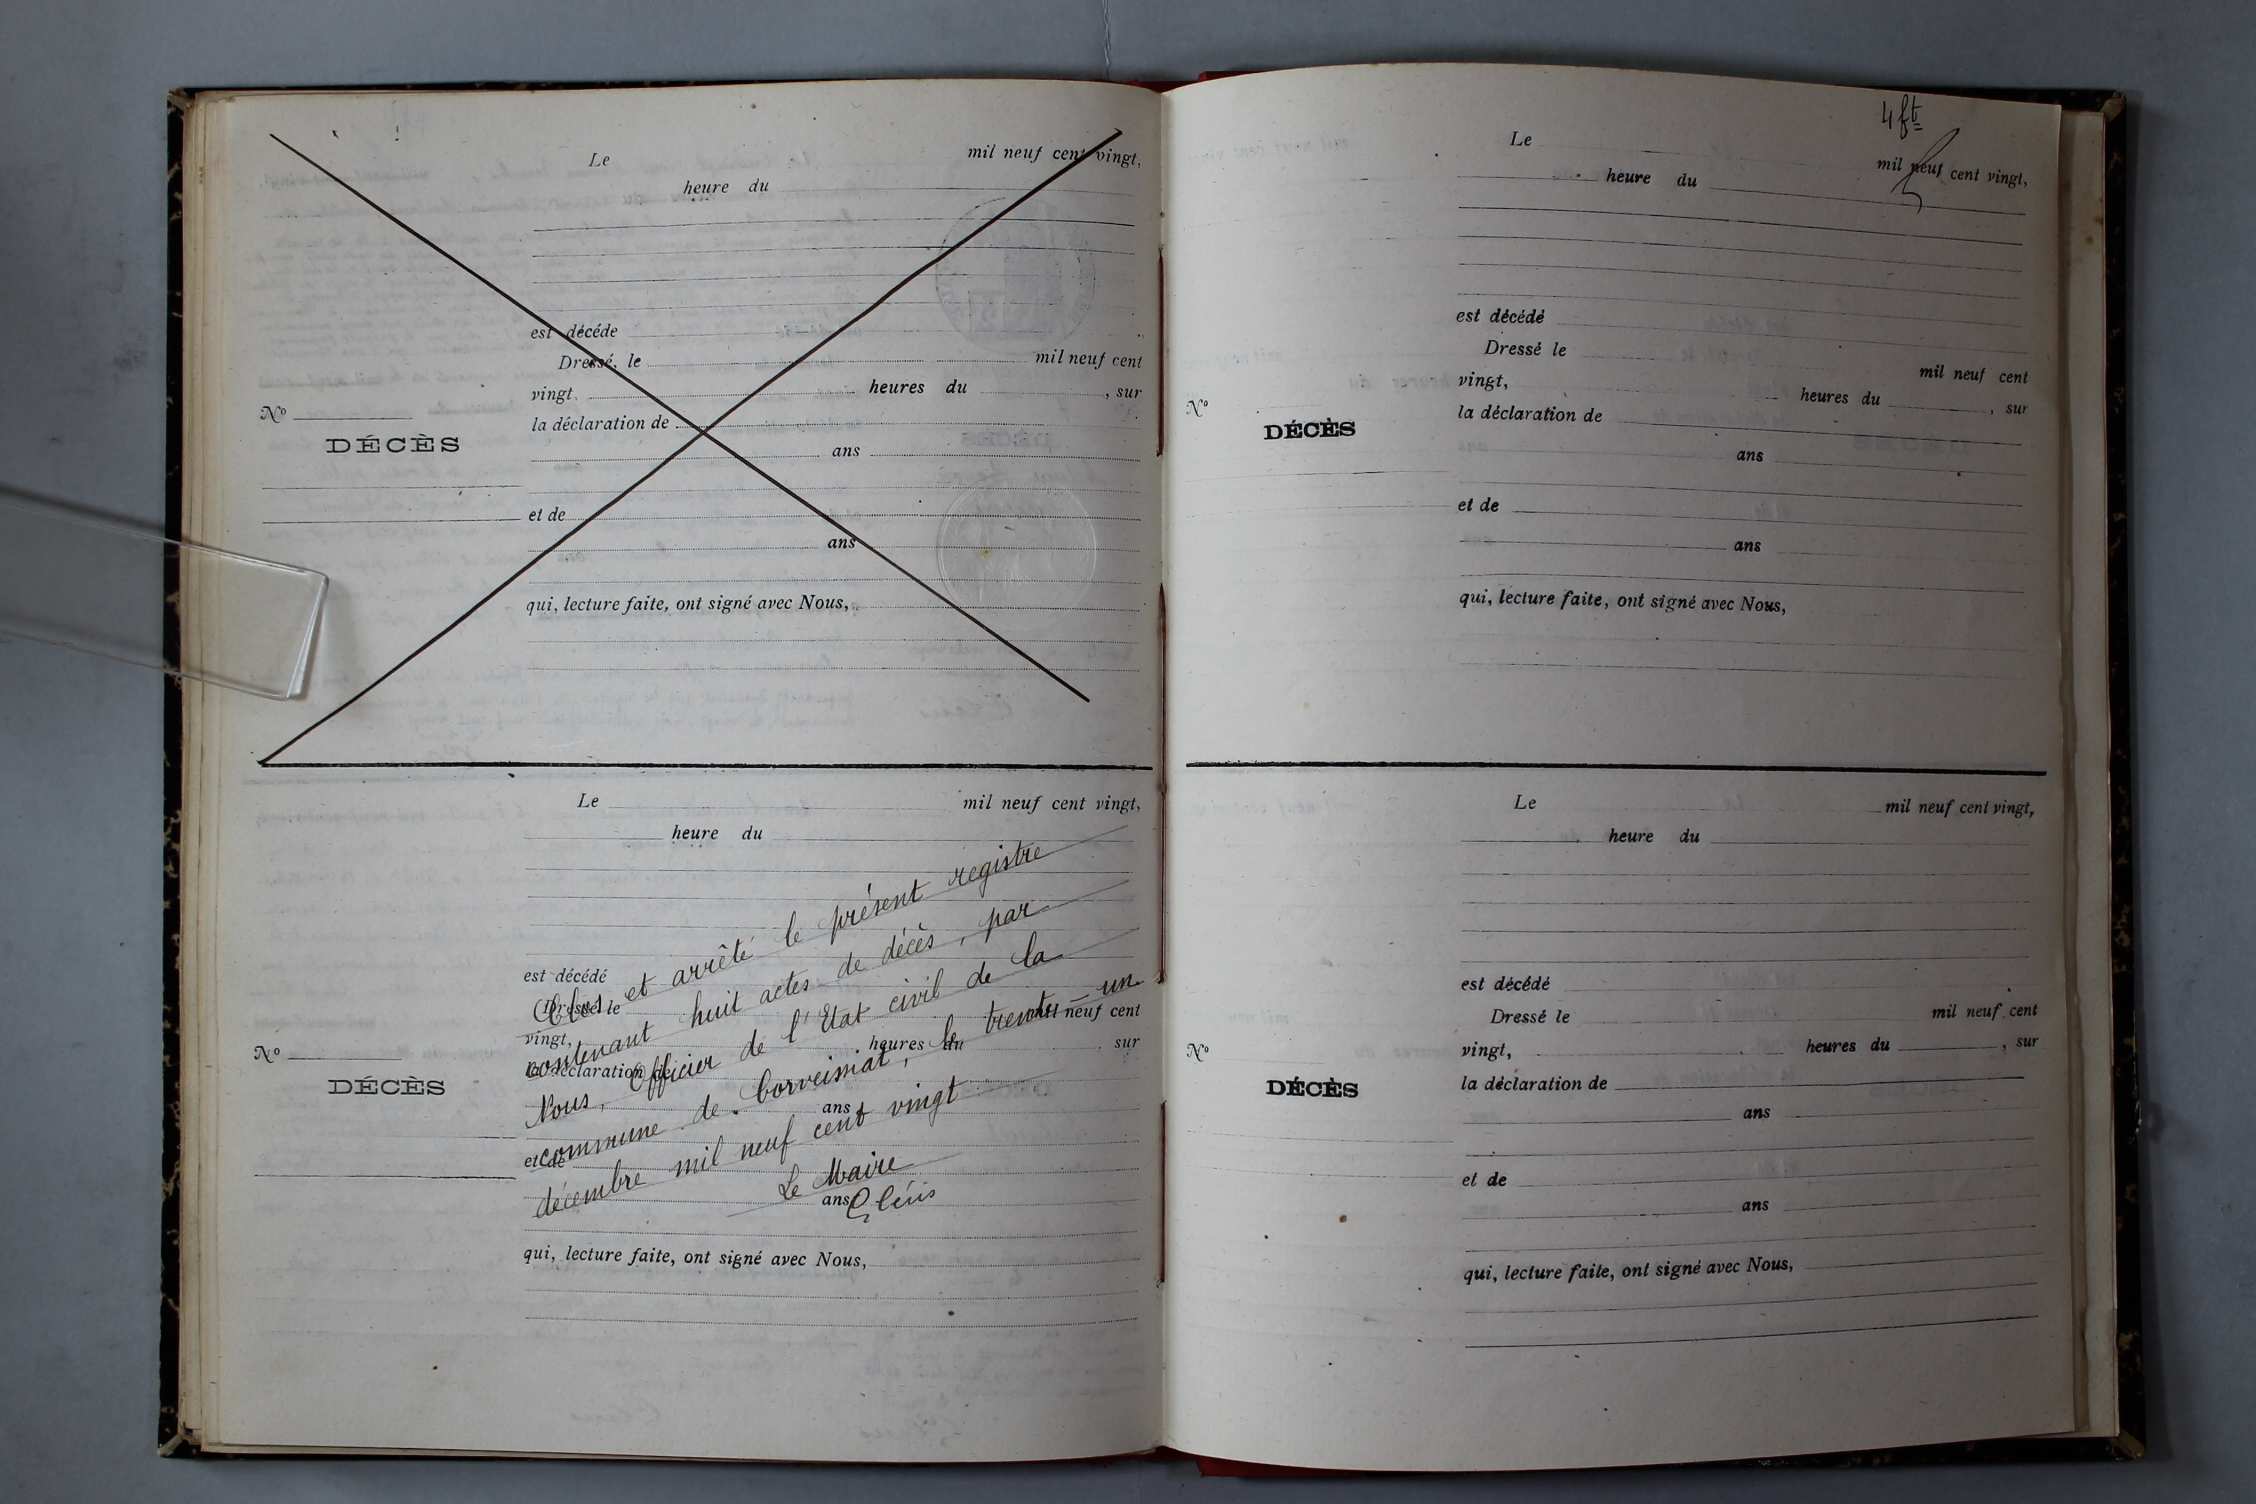 Le mil neuf cent vingt,
heure du
est décéde
Dressé, le mil neuf cent
vingt, heures du , sur
la déclaration de
ans
Nº
DÉCÈS
et de
ans
qui, lecture faite, ont signé avec Nous,
Le mil neuf cent vingt,
heure du
est décédé
Dressé le mil neuf cent
vingt, heures du , sur
la déclaration de
ans
Nº
DÉCÈS
et de
ans
qui, lecture faite, ont signé avec Nous,
Clos et arrêté le présent registre
contenant huit actes de décès, par
Nous, Officier de l'Etat civil de la
commune de Corveissiat, le trente-un
décembre mil neuf cent vingt
Le Maire
4 ft
Le mil neuf cent vingt,
heure du
est décédé
Dressé le mil neuf cent
vingt, heures du , sur
la déclaration de
Nº
DÉCÈS
ans
et de
ans
qui, lecture faite, ont signé avec Nous,
Le mil neuf cent vingt,
heure du
est décédé
Dressé le mil neuf cent
vingt, heures du , sur
la déclaration de
Nº
DÉCÈS
ans
et de
ans
qui, lecture faite, ont signé avec Nous,